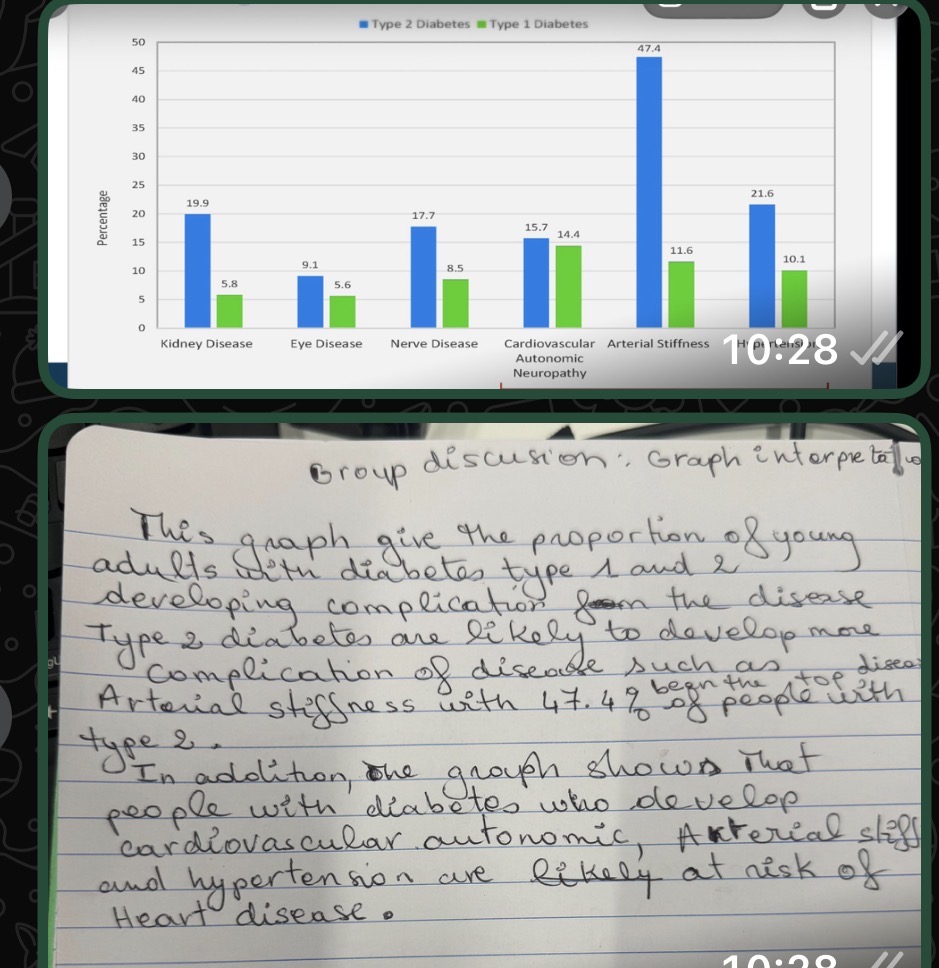 Type 2 Diabetes Type 1 Diabetes
50
45
40
35
30
25
20
15
10
5
0
Percentage
19.9 5.8
9.1 5.6
17.7 8.5
15.7 14.4
47.4 11.6
21.6 10.1
Kidney Disease Eye Disease Nerve Disease Cardiovascular Arterial Stiffness Hypertension
Autonomic
Neuropathy
10:28
Group discusion: Graph interpretatio
This graph give the proportion of young
adults with diabetes type 1 and 2
developing complication from the disease
Type 2 diabetes are likely to develop more
Complication of disease such as
begn the top disea
Arterial stiffness with 47.4% of people with
type 2.
In addition, the graph shows That
people with diabetes who develop
cardiovascular autonomic, Arterial stiff
and hypertension are likely at risk of
Heart disease.
10:28